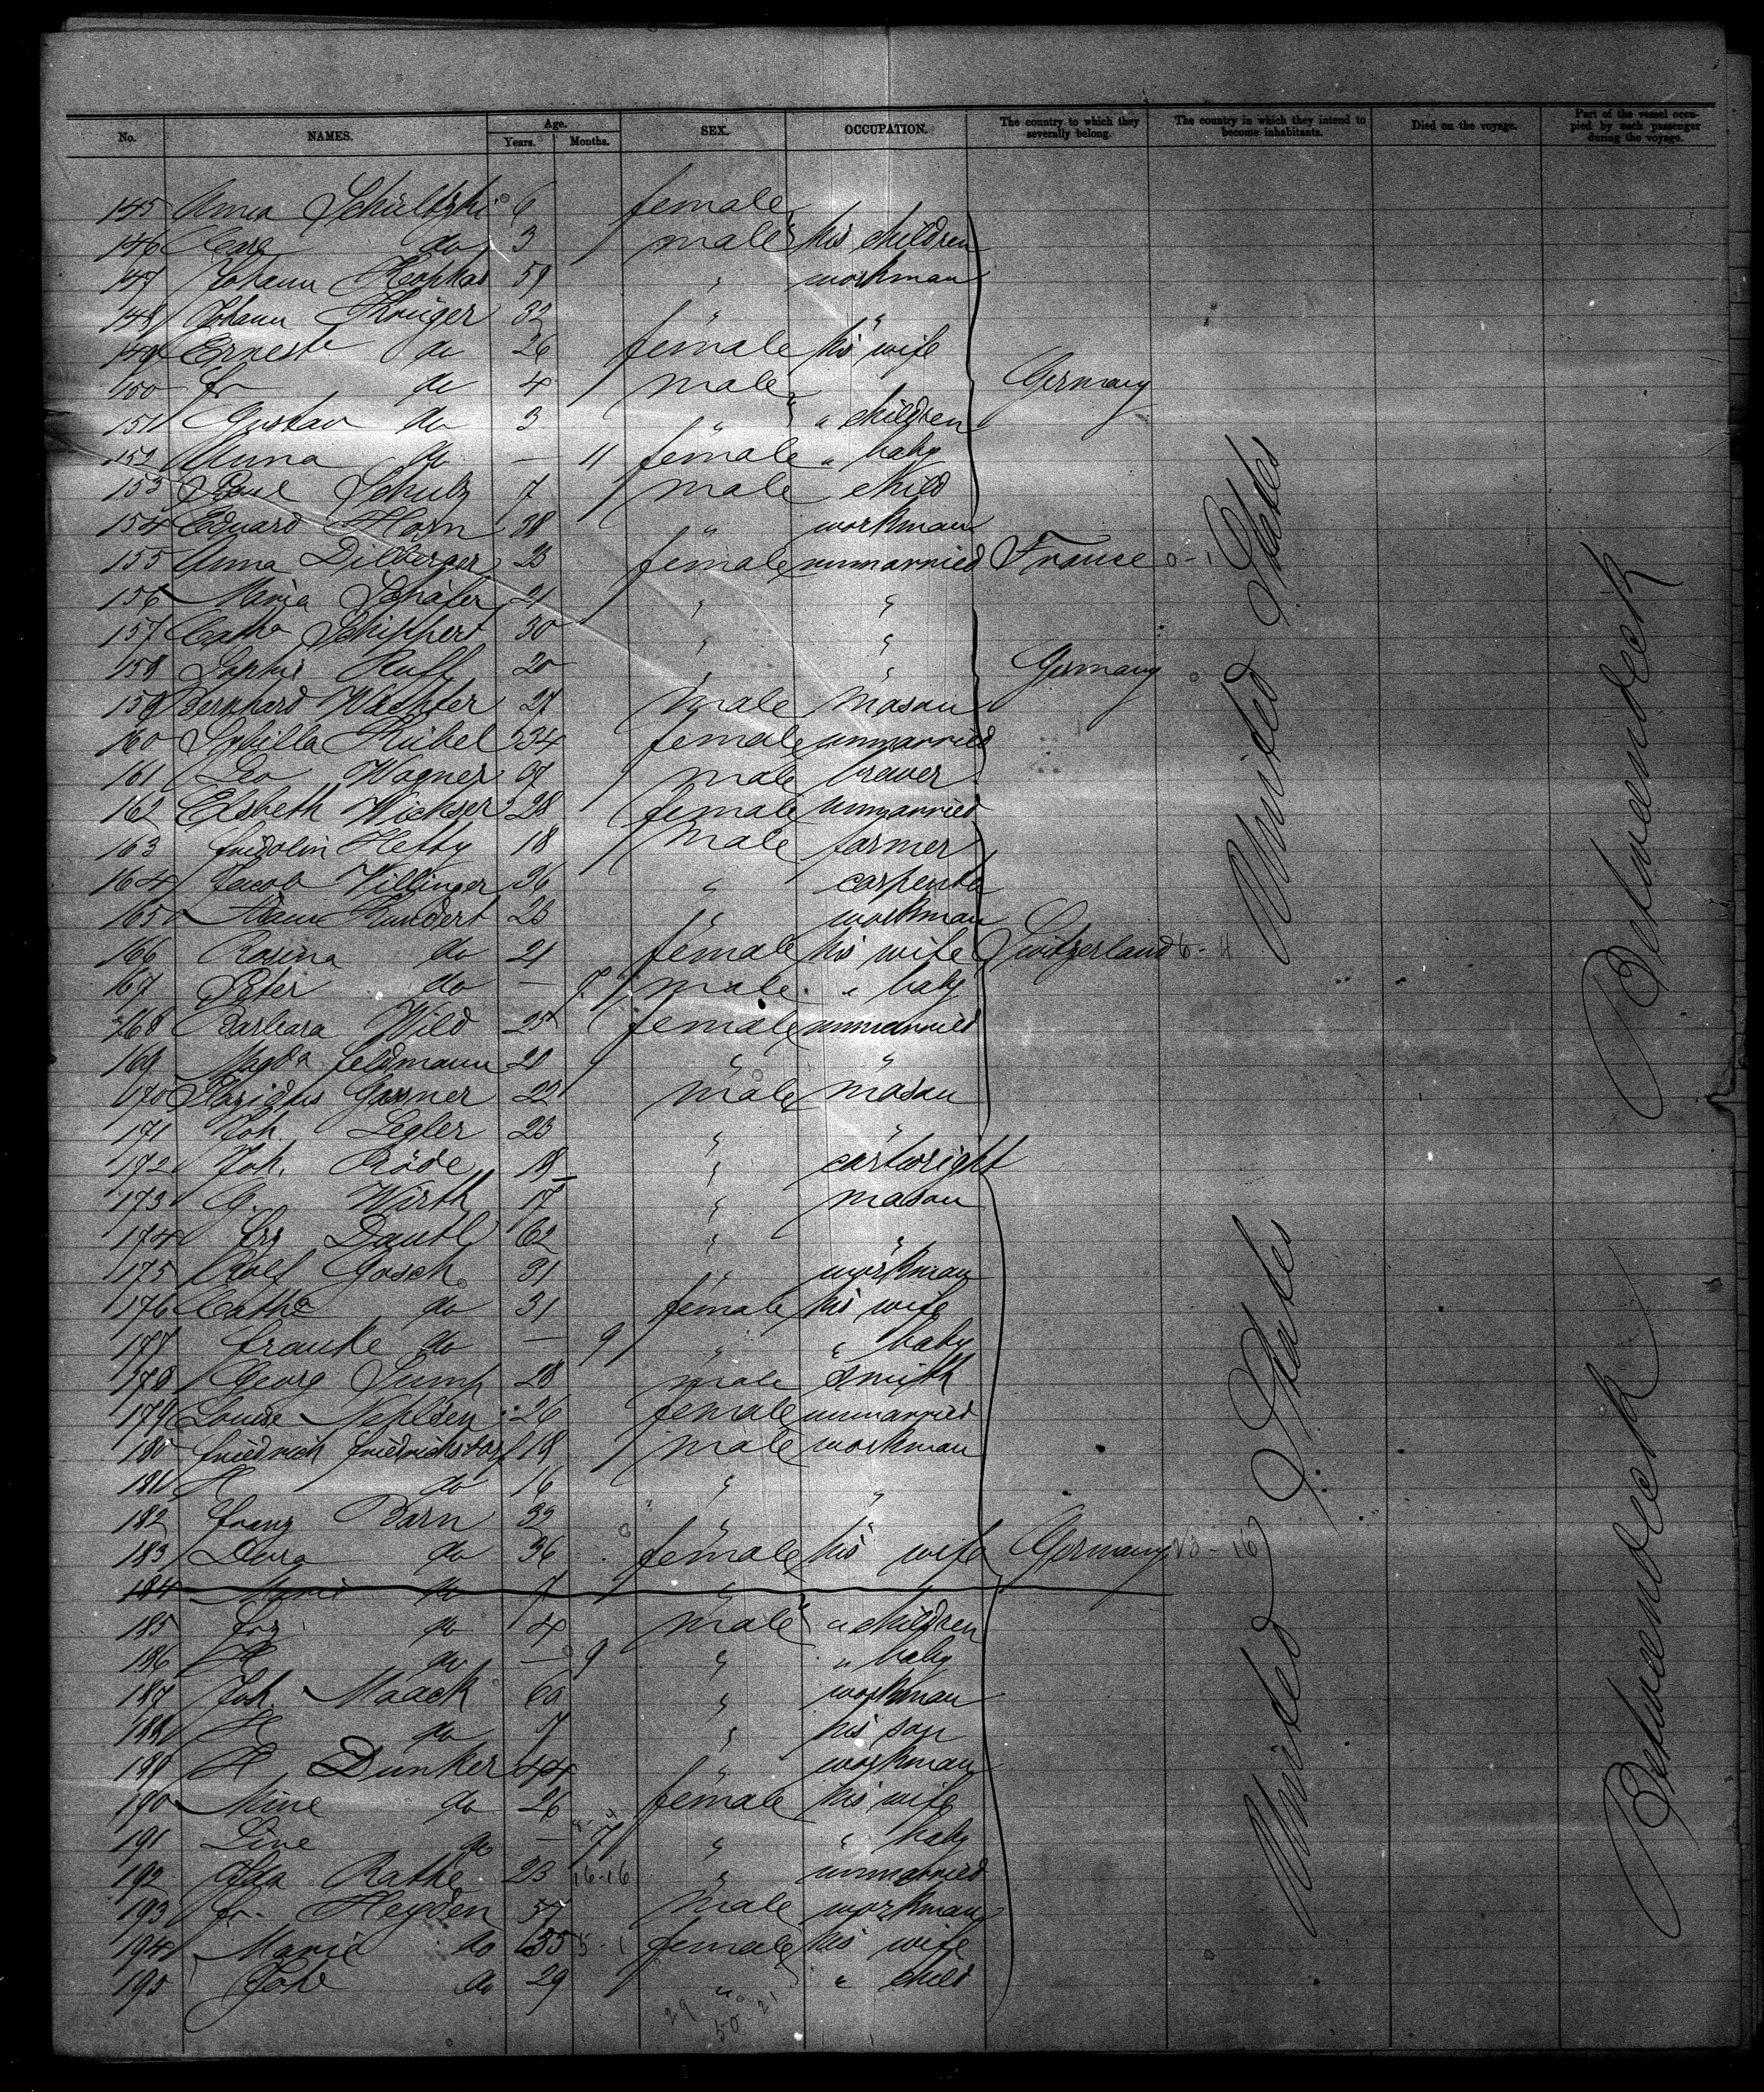 No. NAMES. Age. Years. Months. SEX. OCCUPATION. The country to which they severally belong. The country in which they intend to become inhabitants. Died on the voyage. Part of the vessel occupied by each passenger during the voyage.
145 Anna 6 female
146 Carl do 3 male his children
147 Johann 59 " workman
148 Johann Krüger 32 " "
149 Ernestе do 26 female his wife
150 Fr do 4 male Germany
151 Gustav do 3 " " children
152 Anna do — 11 female " baby
153 Paul Schulz 7 male child
154 Eduard Horn 38 " workman
155 Anna Dilberger 23 female unmarried France 0-1
156 Maria Schäfer 21 " "
157 Catha Schippert 30 " "
158 Sophie Ruff 20 " " Germany
159 Bernhard Wächter 27 male mason
160 Sybilla Kübel 34 female unmarried
161 Leo Wagner male brewer
162 Elsbeth Wichser 28 female unmarried
163 Fridolin Hefty 18 male farmer
164 Jacob Villinger 26 " carpenter
165 Adam Kundert 23 " workman
166 Rosina do 21 female his wife Switzerland
167 Peter do — male " baby
168 Barbara Wild 25 female unmarried
169 Magda Feldmann " "
170 Plazidus Gassner 22 male mason
171 Joh. Legler 23 " "
172 Joh. Röde 18 " cartwright
173 G. Wirth 17 " mason
174 Frz Dautl 62 " "
175 Rolf Gosch 31 " workman
176 Catha do 31 female his wife
177 Frauke do — 9 " " baby
178 Georg Sump 28 male smith
179 Louise Nehlsen 26 female unmarried
180 Friedrich Friedrichsdorf 18 male workman
181 H do 16 " "
182 Franz Barn 32 " "
183 Dora do 36 female his wife Germany
184 Marie do 7 "
185 Frz do 4 male " children
186 H do — 9 " " baby
187 Joh. Maack 60 " workman
188 H do " his son
189 H Dunker 44 " workman
190 Mine do 26 female his wife
191 Line do — 7 " " baby
192 Ida Rathe 23 16-16 " unmarried
193 Fr. Heyden 57 male workman
194 Marie do 55 5-1 female his wife
195 do 29 " " child
United States
United States
Betweendeck
Betweendeck